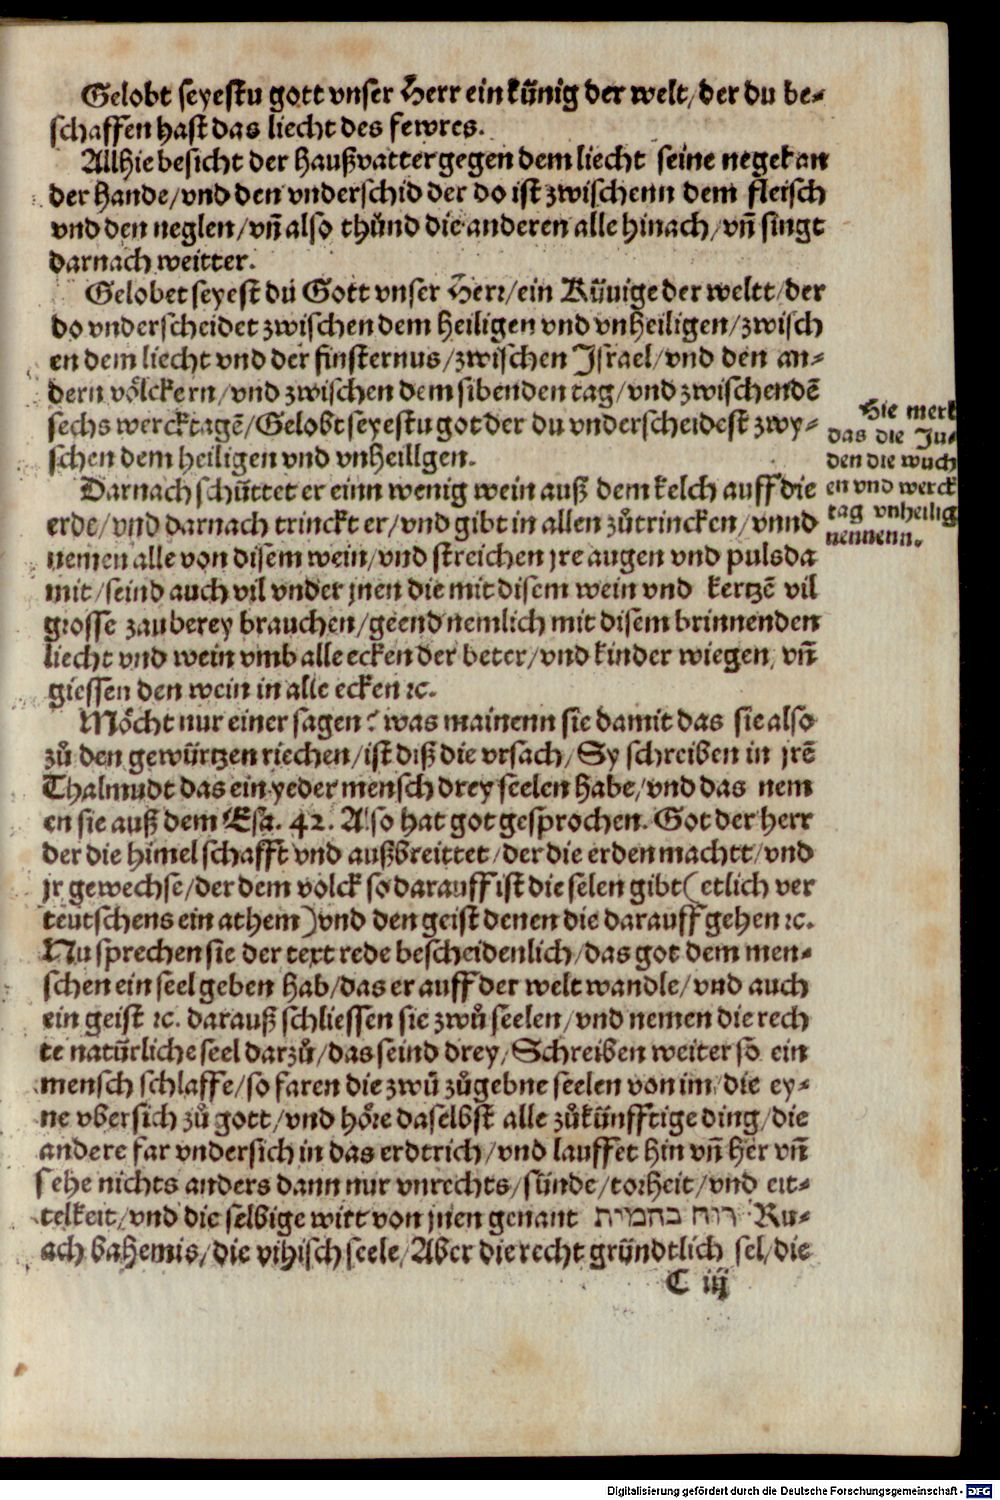 Gelobt seyestu gott vnser Herr ein künig der welt/der du be-
schaffen hast das liecht des fewres.
Allhie besicht der haußvatter gegen dem liecht seine negel an
der hande/vnd den vnderschid der do ist zwischenn dem fleisch
vnd den neglen/vñ also thůnd die anderen alle hinach/vñ singt
darnach weitter.
Gelobet seyest dü Gott vnser Herr/ein Küuige der weltt/der
do vnderscheidet zwischen dem heiligen vnd vnheiligen/zwisch
en dem liecht vnd der finsternus/zwischen Israel/vnd den an-
dern völckern/vnd zwischen dem sibenden tag/vnd zwischen dē
sechs wercktagē/Gelobt seyestu got der du vnderscheidest zwy-
schen dem heiligen vnd vnheillgen.
Darnach schüttet er einn wenig wein auß dem kelch auff die
erde/vnd darnach trinckt er/vnd gibt in allen zůtrincken/vnnd
nemen alle von disem wein/vnd streichen jre augen vnd puls da
mit/seind auch vil vnder jnen die mit disem wein vnd kertzē vil
grosse zauberey brauchen/geend nemlich mit disem brinnenden
liecht vnd wein vmb alle ecken der beter/vnd kinder wiegen, vñ
giessen den wein in alle ecken ꝛc.
Möcht nur einer sagen? was mainenn sie damit das sie also
zů den gewürtzen riechen/ist diß die vrsach/Sy schreiben in jrē
Thalmudt das ein yeder mensch drey seelen habe/vnd das nem
en sie auß dem Esa. 42. Also hat got gesprochen. Got der herr
der die himel schafft vnd außbreittet/der die erden machtt/vnd
jr gewechse/der dem volck so darauff ist die selen gibt(etlich ver
teutschens ein athem)vnd den geist denen die darauff gehen ꝛc.
Nu sprechen sie der text rede bescheidenlich/das got dem men-
schen ein seel geben hab/das er auff der welt wandle/vnd auch
ein geist ꝛc. darauß schliessen sie zwů seelen/vnd nemen die rech
te natürliche seel darzů/das seind drey/Schreiben weiter so ein
mensch schlaffe/so faren die zwů zůgebne seelen von im/die ey-
ne vbersich zů gott/vnd höre daselbst alle zůkünfftige ding/die
andere far vndersich in das erdtrich/vnd lauffet hin vñ her vñ
sehe nichts anders dann nur vnrechts/sünde/torheit/vnd eit-
telkeit/vnd die selbige wirt von jnen genant רוח בהמית Ru-
ach bahemis/die vihisch seele/Aber die recht gründtlich sel/die
C iij
Hie merk
das die Ju-
den die wuch
en vnd werck
tag vnheilig
nennenn.
Digitalisierung gefördert durch die Deutsche Forschungsgemeinschaft - DFG